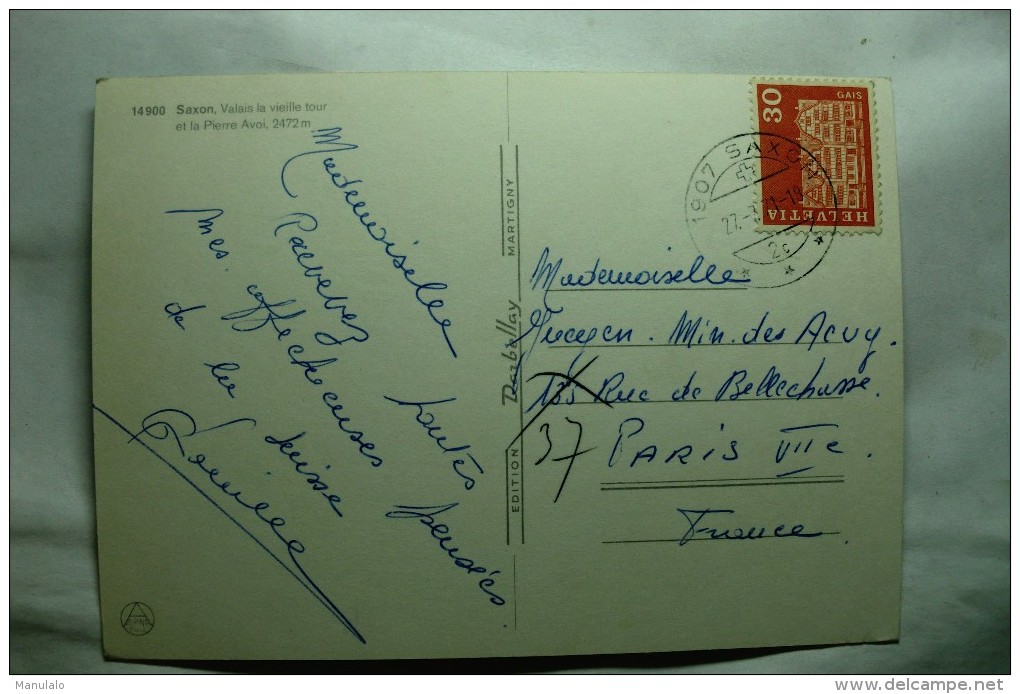 14900 Saxon, Valais la vieille tour
et la Pierre Avoi, 2472 m
Mademoiselle
Recevez toutes
mes affectueuses pensées
de la Suisse
EDITION Darbellay MARTIGNY
30
GAIS
HELVETIA
1907 SAXON
27.-
-19
2c
Mademoiselle
Min. des
135 Rue de Bellechasse.
37 PARIS VIIe.
France.
Manulalo
delcampe.net